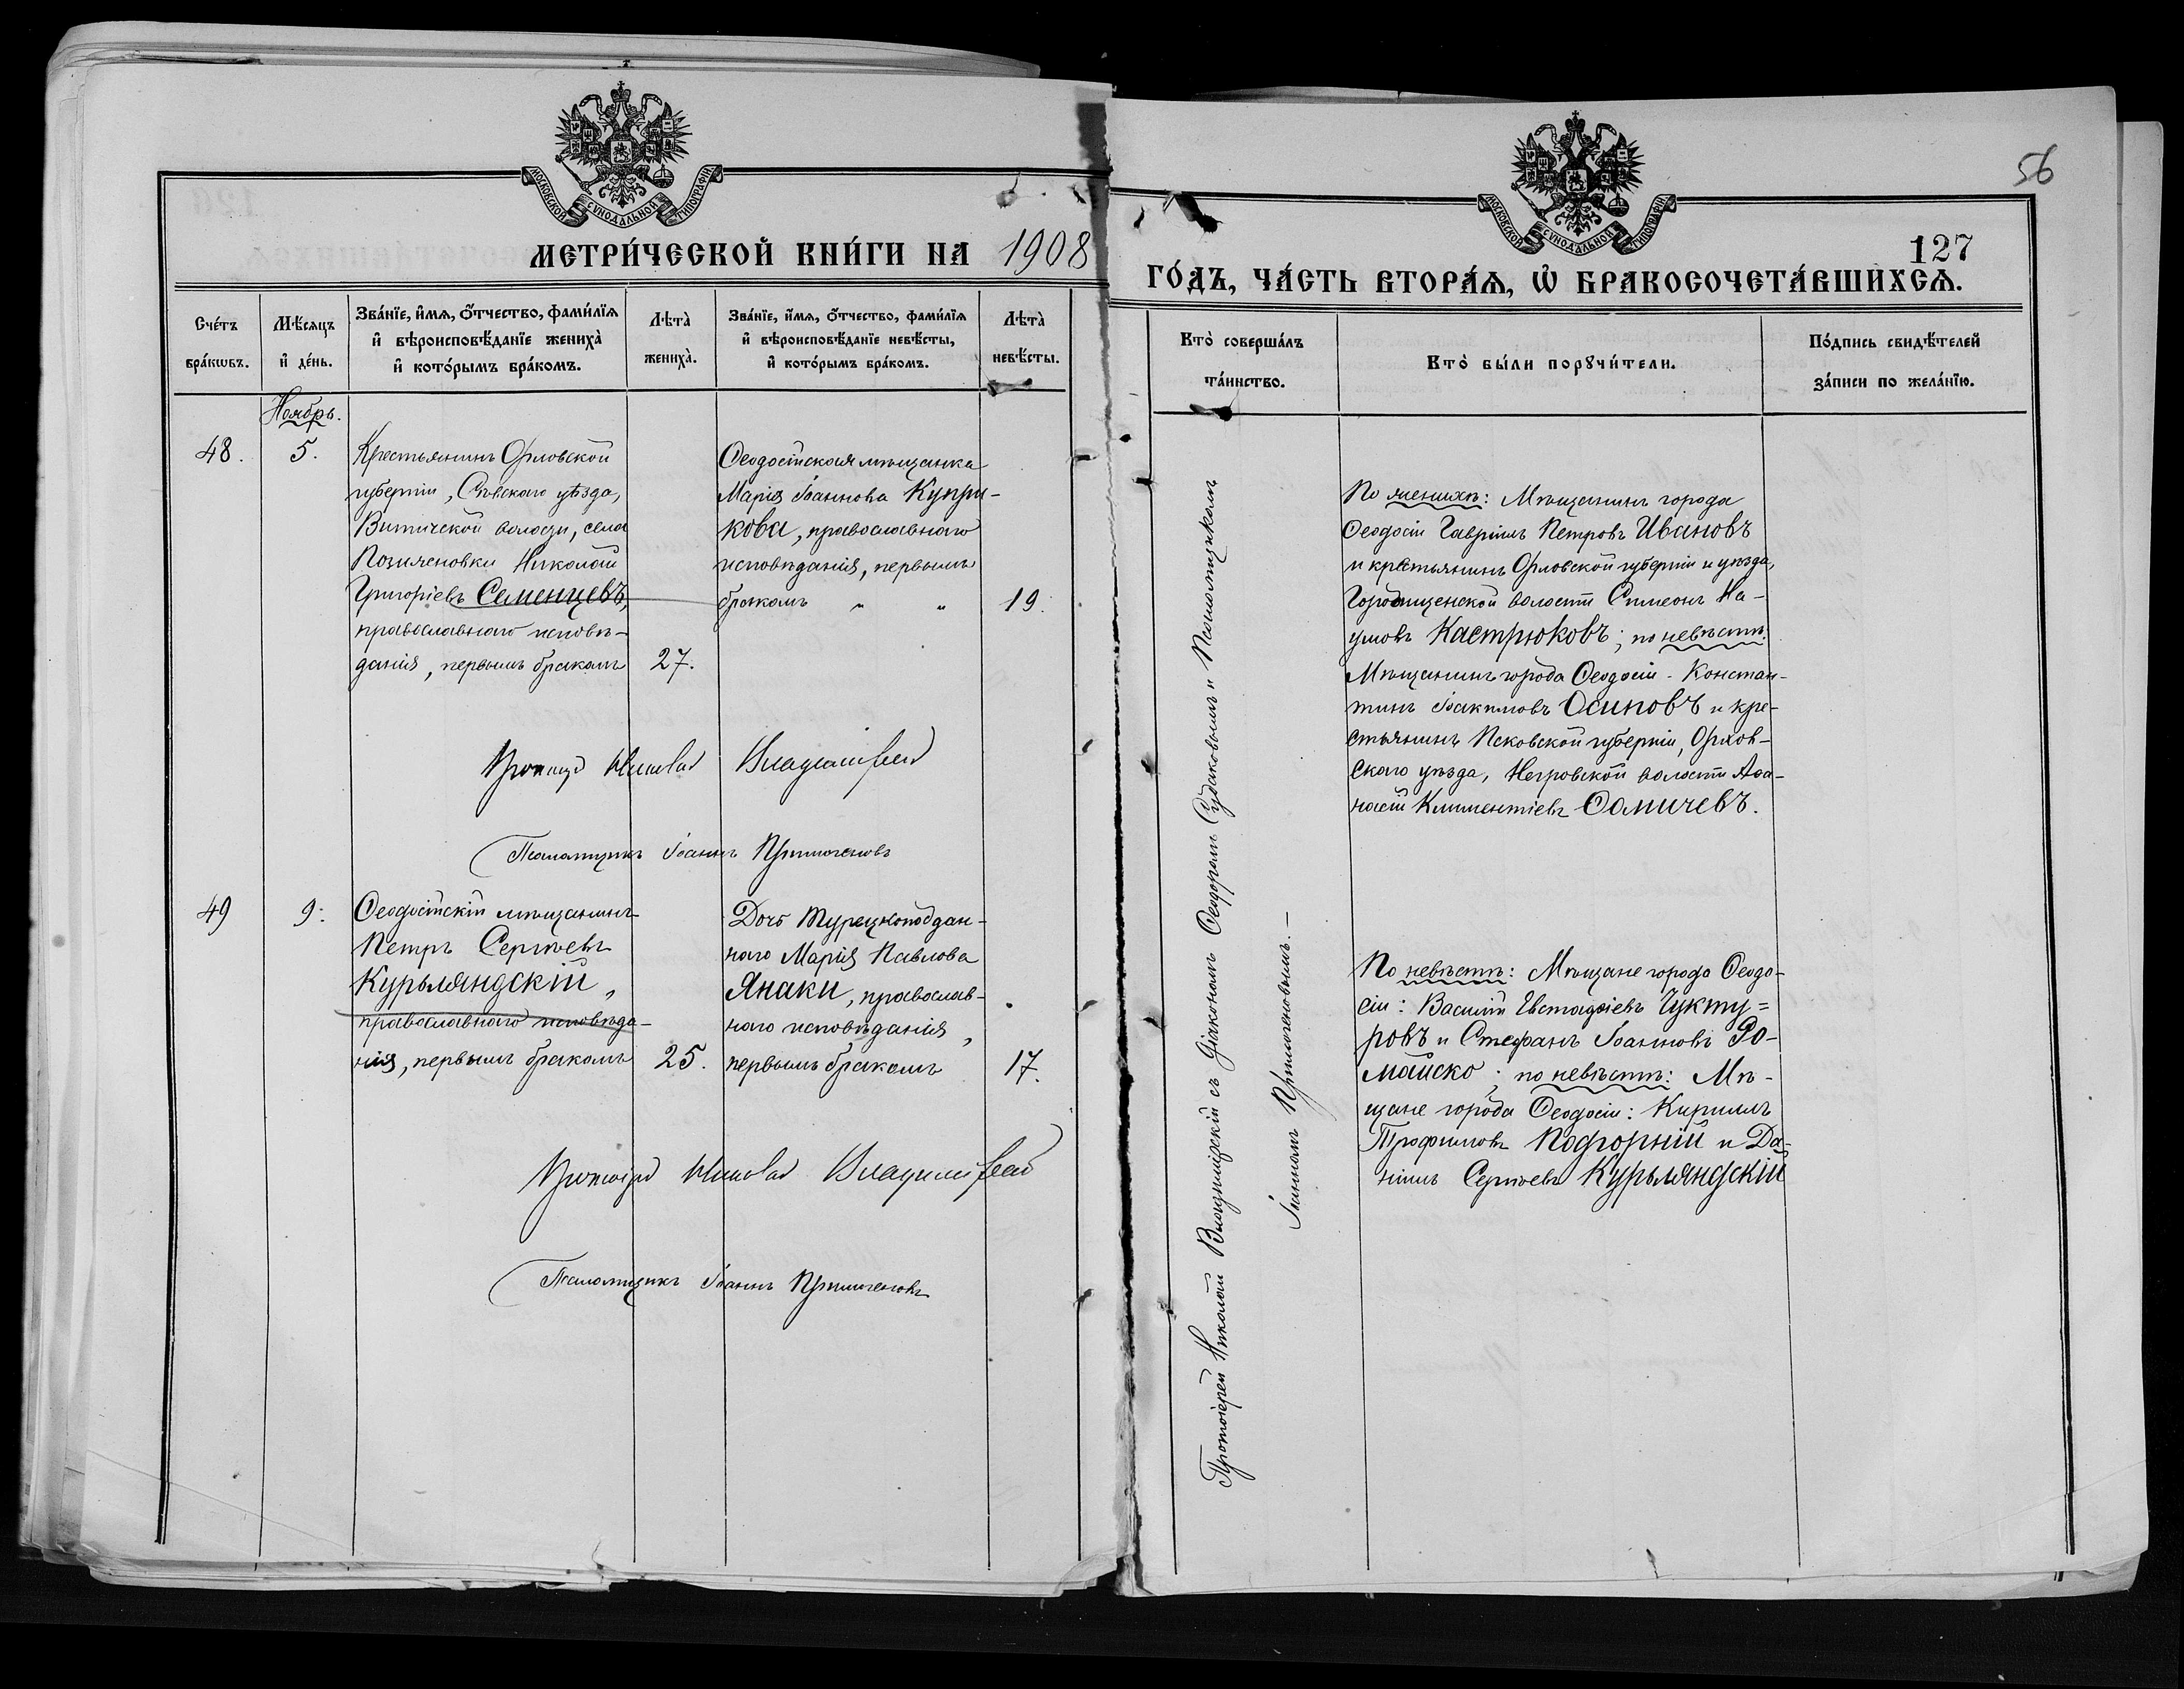 МОСКОВСКОЙ СѴНОДАЛЬНОЙ ТИПОГРАФІИ
МЕТРИ́ЧЕСКОЙ КНИ́ГИ НА 1908
Сче́тъ бра́кѡвъ.
Мѣ́сяцъ и҆ де́нь.
Зва́нїе, и҆́мѧ, ѻ҆́тчество, фами́лїѧ и҆ вѣроисповѣ́данїе жениха̀ и҆ кото́рымъ бра́комъ.
Лѣта̀ жениха̀.
Зва́нїе, и҆́мѧ, ѻ҆́тчество, фами́лїѧ и҆ вѣроисповѣ́данїе невѣ́сты, и҆ кото́рымъ бра́комъ.
Лѣта̀ невѣ́сты.
Ноябрь.
48.
5.
Крестьянинъ Орловской
губерніи, Сѣвскаго уѣзда,
волости, села
Николай
Григоріевъ Семенцевъ,
православнаго исповѣ-
данія, первымъ бракомъ
27.
Ѳеодосійская мѣщанка
Марія Іоаннова Купри-
кова, православнаго
исповѣданія, первымъ
бракомъ " "
19.
Николай Владимірскій
Псаломщикъ Іоаннъ
49
9.
Ѳеодосійскій мѣщанинъ
Петръ Сергѣевъ
Курьляндскій,
православнаго исповѣда-
нія, первымъ бракомъ
25.
Дочь Турецкоподдан-
наго Марія Павлова
Янаки, православ-
наго исповѣданія,
первымъ бракомъ
17.
Протоіерей Николай Владимірскій
Псаломщикъ Іоаннъ
МОСКОВСКОЙ СѴНОДАЛЬНОЙ ТИПОГРАФІИ
56
127
ГО́ДЪ, ЧА́СТЬ ВТОРА́Ѧ, Ѽ БРАКОСОЧЕТА́ВШИХСѦ.
Кто̀ соверша́лъ та́инство.
Кто̀ бы́ли порꙋчи́тели.
По́дпись свидѣ́телей за́писи по жела́нїю.
Протоіерей Николай Владимірскій съ діакономъ Ѳеодоромъ Судаковымъ и Псаломщикомъ
Іоанномъ
По женихѣ: Мѣщанинъ города
Ѳеодосіи Гавріилъ Петровъ Ивановъ
и крестьянинъ Орловской губерніи и уѣзда,
Городищенской волости Симеонъ На-
умовъ Кастрюковъ; по невѣстѣ:
Мѣщанинъ города Ѳеодосіи - Констан-
тинъ Іоакимовъ Осиповъ и кре-
стьянинъ Псковской губерніи,
скаго уѣзда, волости Аѳа-
насій Климентіевъ Ѳомичевъ.
По невѣстѣ: Мѣщане города Ѳеодо-
сіи: Василій Евстафіевъ Чукту=
ровъ и Стефанъ Іоанновъ Ро-
майско; по невѣстѣ: Мѣ-
щане города Ѳеодосіи: Кириллъ
Трофимовъ Подгорный и Да-
ніилъ Сергѣевъ Курьляндскій